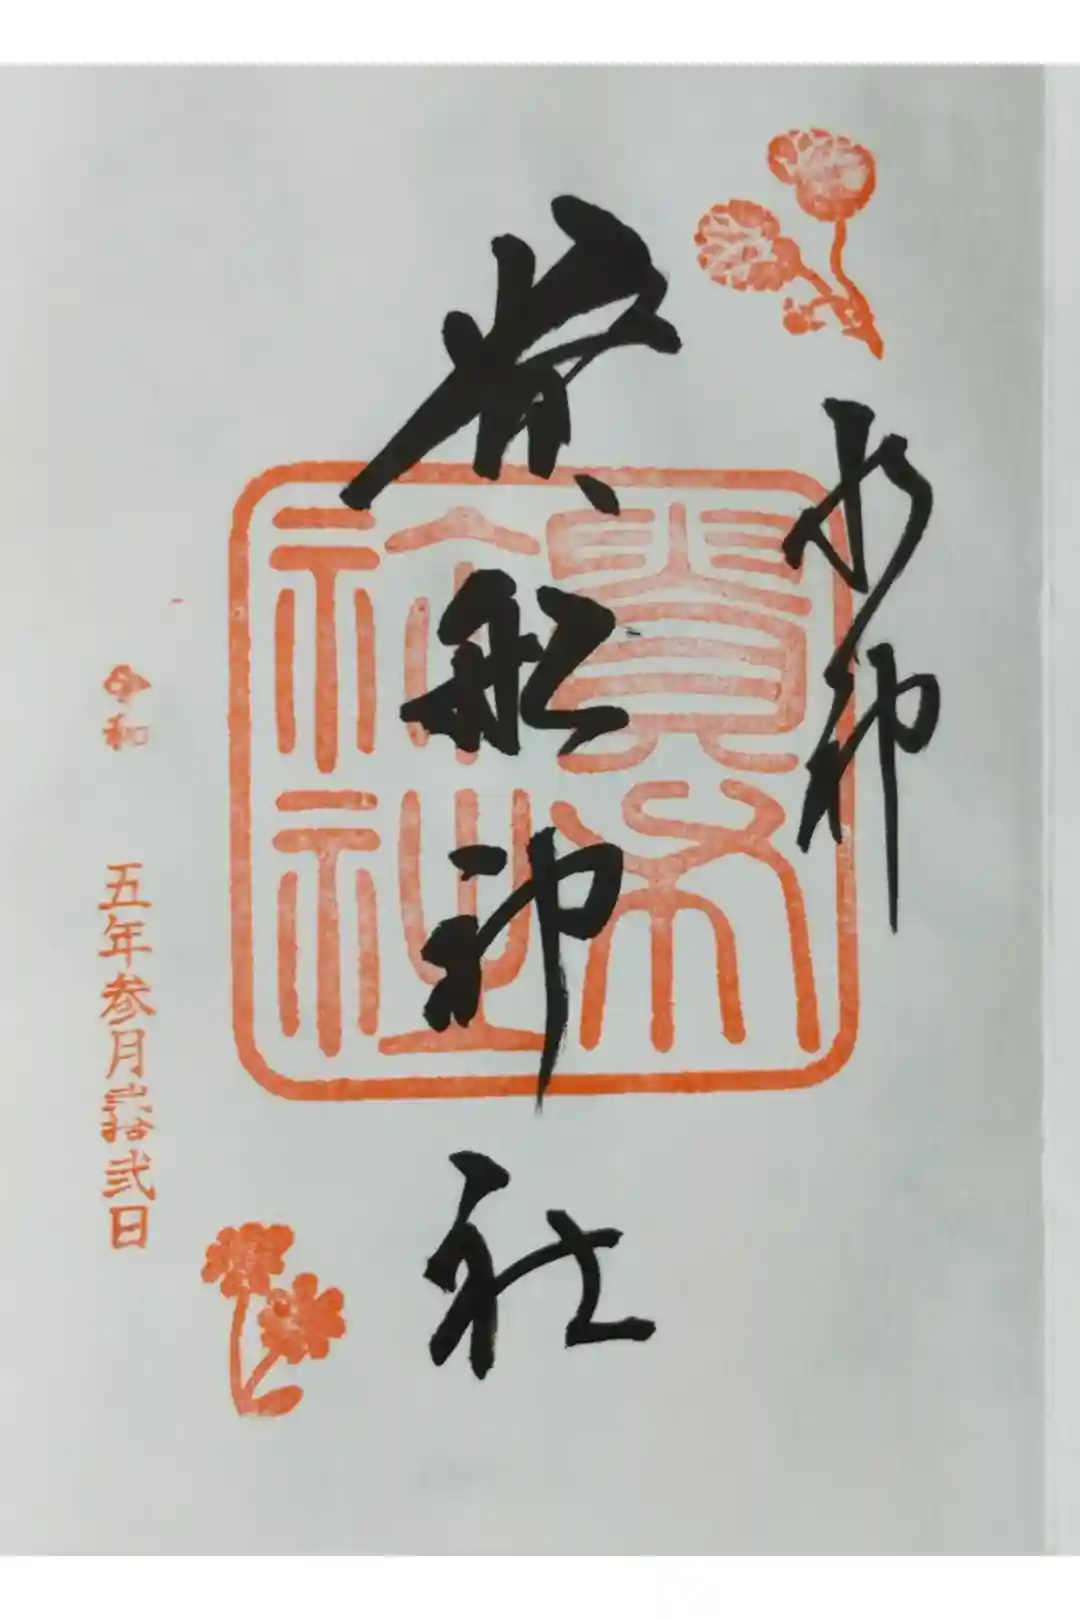 水神
貴船神社
貴布
祢社
令和 五年参月弐拾弐日